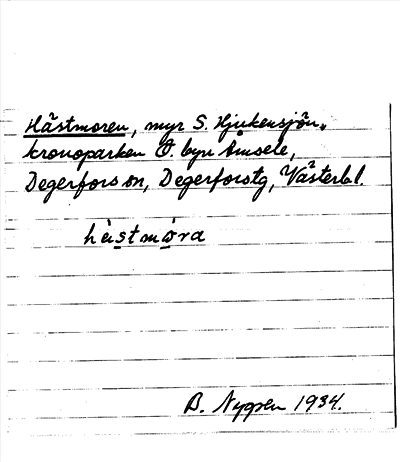 Hästmoren, myr S. Hjukensjön,
kronoparken Ö. byn Åmsele,
Degerfors sn, Degerforstg, Västerbl.
hästmora
B. Nygren 1934.